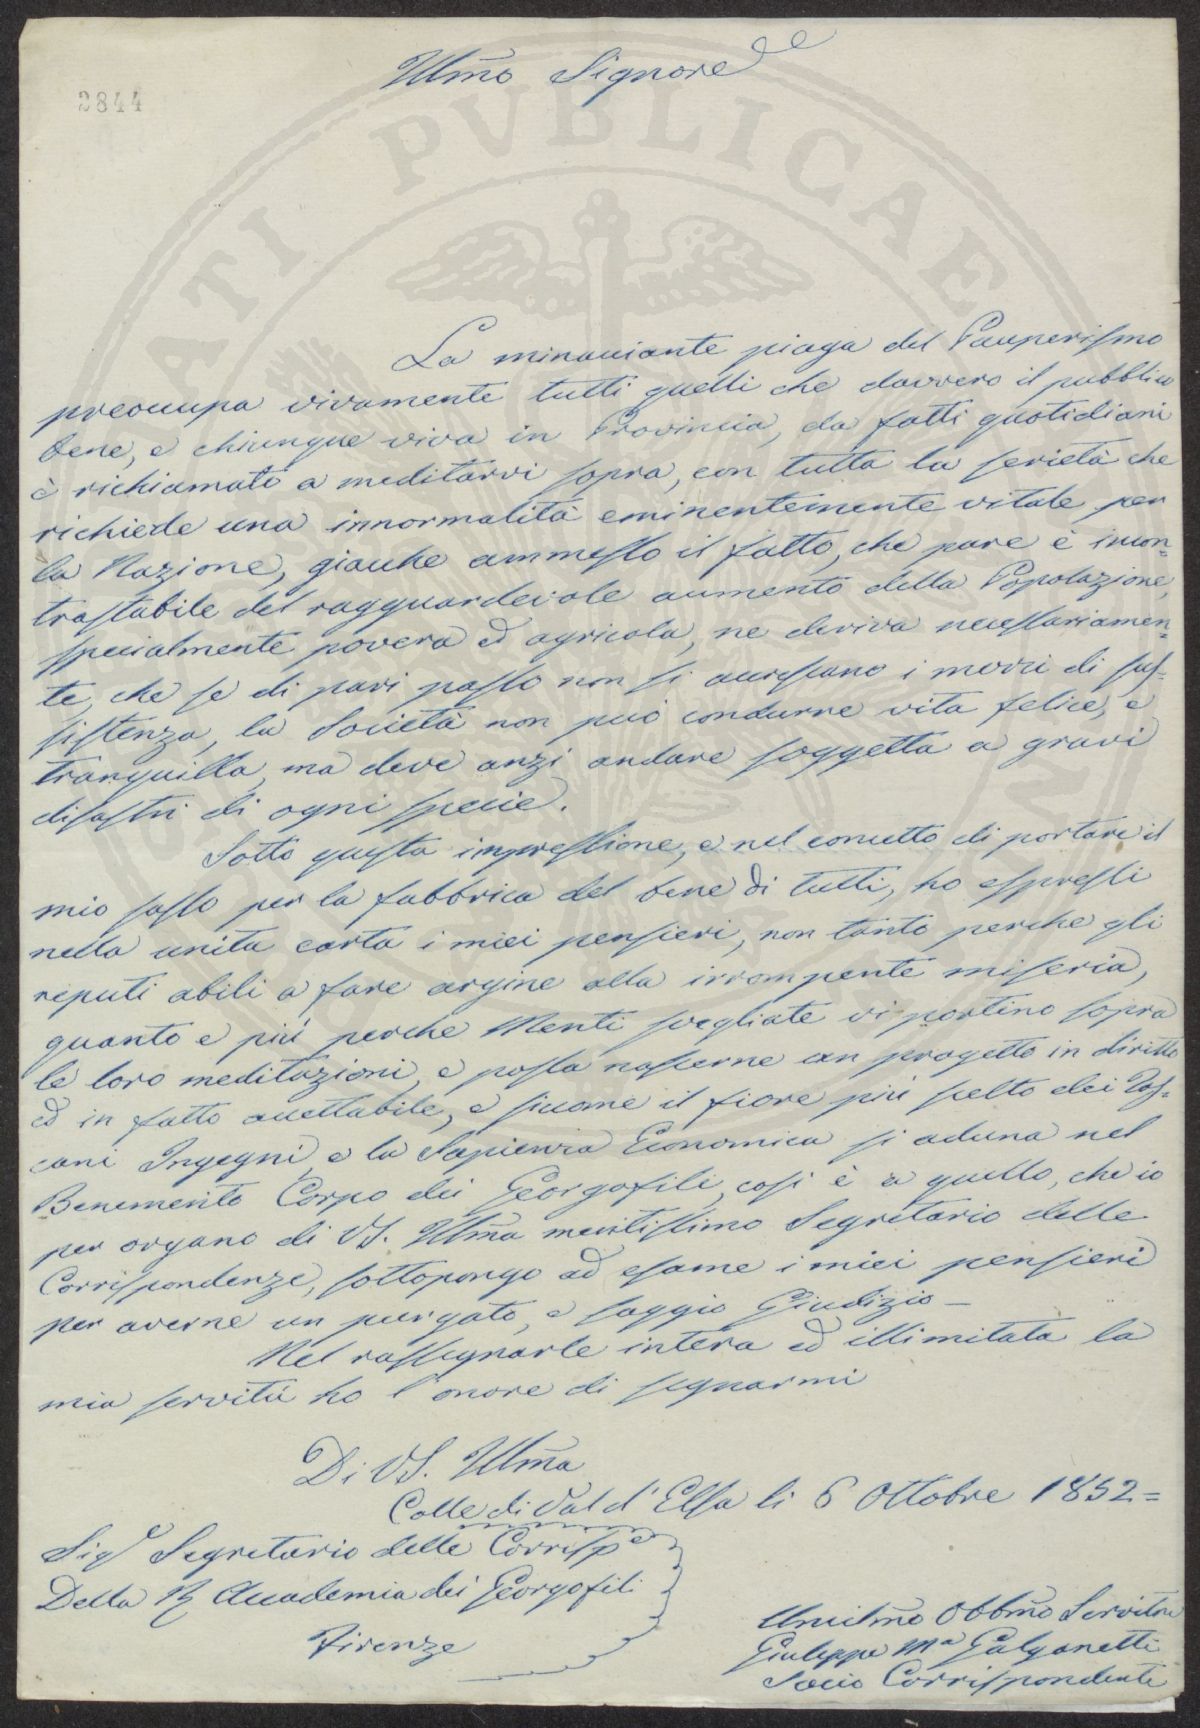 Illmo Signore
2844
La minacciante piaga del Pauperismo
preoccupa vivamente tutti quelli che davvero il pubblico
bene, e chiunque viva in Provincia, da fatti quotidiani
è richiamato a meditarvi sopra, con tutta la serietà che
richiede una innormalità eminentemente vitale per
la Nazione, giacche ammesso il fatto, che pare è incon=
trastabile del ragguardevole aumento della Popolazione,
specialmente povera ed agricola, ne deriva necessariamen=
te, che se di pari passo non si accrescano i mezzi di sus=
sistenza, la Società non può condurre vita felice, e
tranquilla, ma deve anzi andare soggetta a gravi
disastri di ogni specie.
Sotto questa impressione, e nel concetto di portare il
mio sasso per la fabbrica del bene di tutti, ho espressi
nella unita carta i miei pensieri, non tanto perche gli
reputi abili a fare argine alla irrompente miseria,
quanto e più perche Menti svegliate vi portino sopra
le loro meditazioni, e possa nascerne un progetto in diritto
ed in fatto accettabile, e siccome il fiore più scelto dei Tos=
cani Ingegni, e la Sapienza Economica si aduna nel
Benemerito Corpo dei Georgofili, così è a quello, che io
per organo di VS. Illma meritissimo Segretario delle
Corrispondenze, sottopongo ad esame i miei pensieri
per averne un purgato, e saggio Giudizio _
Nel rassegnarle intera ed illimitata la
mia servitù ho l'onore di segnarmi
Di VS. Illma
Colle di Val d'Elsa li 6 Ottobre 1852=
Sigr Segretario delle Corrispe
Della R Accademia dei Georgofili
Firenze
Umilmo Obbmo Servitore
Giuseppe Ma Galganetti
Socio Corrispondente
PVBLICAE